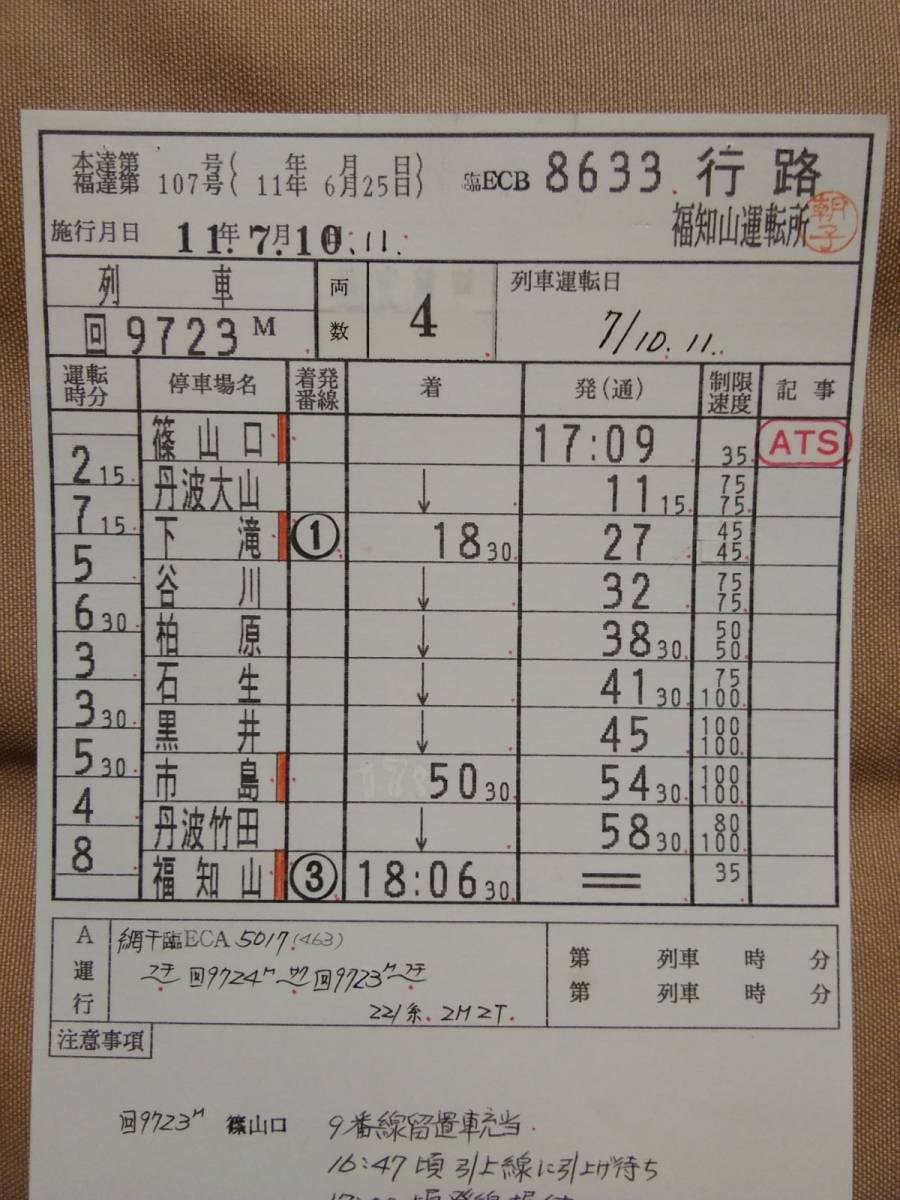 本達第 号( 年 月 日)
福達第 107号( 11年 6月25日)
臨ECB 8633 行路
福知山運転所
朝子
施行月日 11年7月10日.11.
列車 両数 4 列車運転日
回9723M 7/10.11.
運転時分 停車場名 着発番線 着 発(通) 制限速度 記事
篠山口 17:09 35 ATS
2 15
丹波大山 ↓ 11 15 75 75
7 15
下滝 ① 18 30 27 45 45
5
谷川 ↓ 32 75 75
6 30
柏原 ↓ 38 30 50 50
3
石生 ↓ 41 30 75 100
3 30
黒井 ↓ 45 100 100
5 30
市島 50 30 54 30 100 100
4
丹波竹田 ↓ 58 30 80 100
8
福知山 ③ 18:06 30 = 35
A運行 網干臨ECA 5017(463)
フチ 回9724M サク 回9723M フチ
221系. 2M2T.
第 列車 時 分
第 列車 時 分
注意事項
回9723M 篠山口 9番線留置車充当.
16:47頃 引上線に引上げ待ち